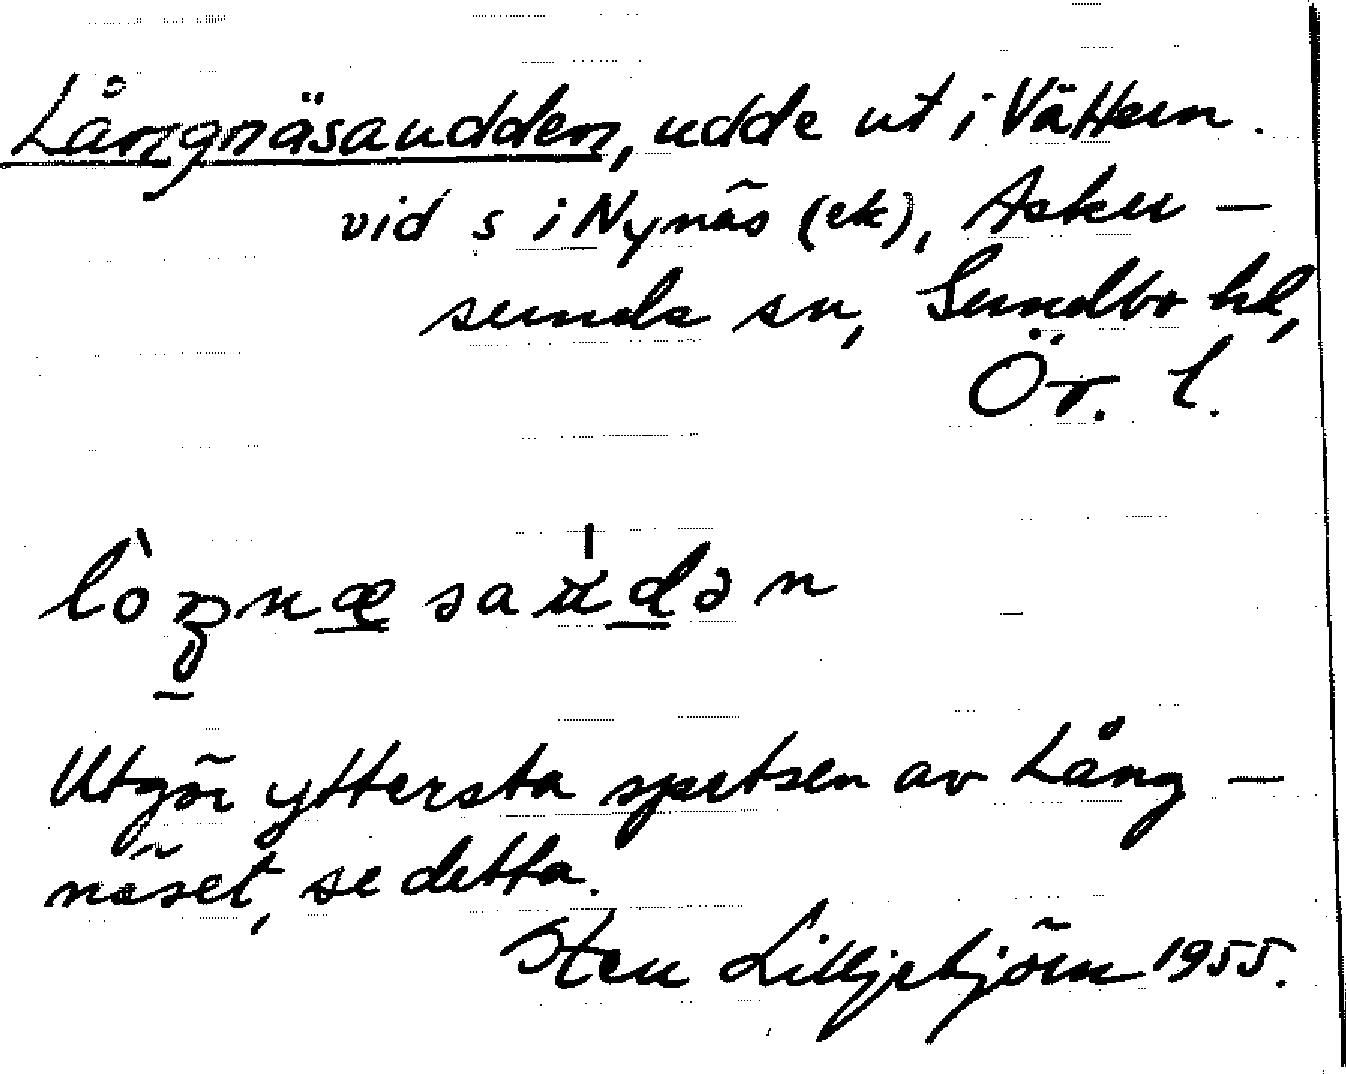 Långnäsaudden, udde ut i Vättern.
vid s i Nynäs (ek), Asker-
sunds sn, Sundbo hd,
Ör. l.
lòŋnæsaúdən
Utgör yttersta spetsen av Lång-
näset, se detta.
Sten Lilljebjörn 1955.